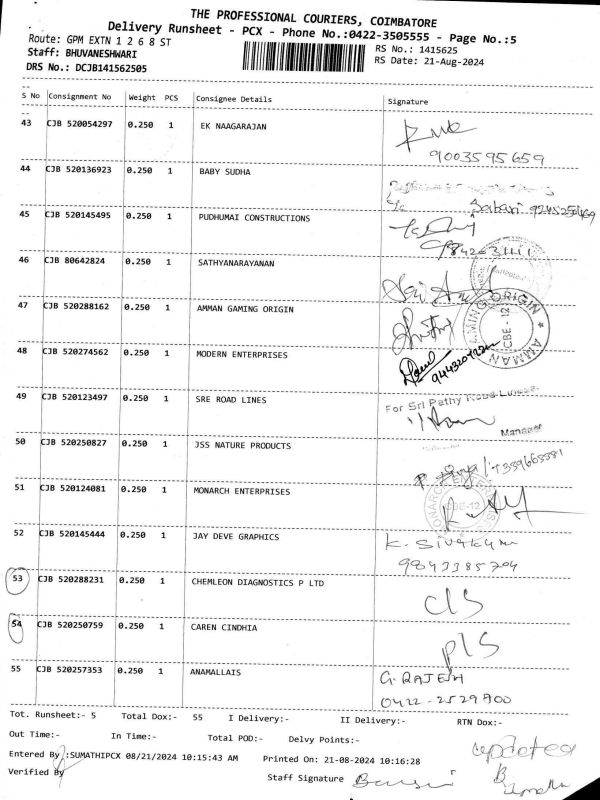 THE PROFESSIONAL COURIERS, COIMBATORE
Delivery Runsheet - PCX - Phone No.:0422-3505555 - Page No.:5
Route: GPM EXTN 1 2 6 8 ST
RS No.: 1415625
Staff: BHUVANESHWARI
RS Date: 21-Aug-2024
DRS No.: DCJB141562505
S No Consignment No Weight PCS Consignee Details Signature
43 CJB 520054297 0.250 1 EK NAAGARAJAN
9003595659
44 CJB 520136923 0.250 1 BABY SUDHA
Sabari
45 CJB 520145495 0.250 1 PUDHUMAI CONSTRUCTIONS
46 CJB 80642824 0.250 1 SATHYANARAYANAN
47 CJB 520288162 0.250 1 AMMAN GAMING ORIGIN
AMMAN GAMING ORIGIN CBE - 12
48 CJB 520274562 0.250 1 MODERN ENTERPRISES
49 CJB 520123497 0.250 1 SRE ROAD LINES
For Sri Pathy Road Lines
Manager
50 CJB 520250827 0.250 1 JSS NATURE PRODUCTS
51 CJB 520124081 0.250 1 MONARCH ENTERPRISES
52 CJB 520145444 0.250 1 JAY DEVE GRAPHICS
K. Sivakumar
9843385704
53 CJB 520288231 0.250 1 CHEMLEON DIAGNOSTICS P LTD
C/S
54 CJB 520250759 0.250 1 CAREN CINDHIA
P/S
55 CJB 520257353 0.250 1 ANAMALLAIS
G. RAJESH
0422-2529900
Tot. Runsheet:- 5 Total Dox:- 55 I Delivery:- II Delivery:- RTN Dox:-
Out Time:- In Time:- Total POD:- Delvy Points:-
Entered By :SUMATHIPCX 08/21/2024 10:15:43 AM Printed On: 21-08-2024 10:16:28
updated
Verified By
Staff Signature